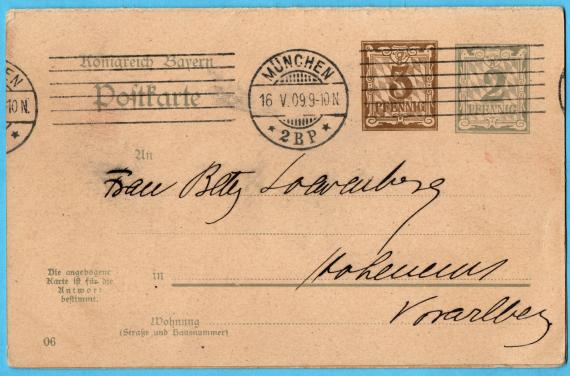 Königreich Bayern
Postkarte
MÜNCHEN
16 V. 09. 9-10 N.
* 2 B P *
3
PFENNIG
2
PFENNIG
EN
-10 N.
*
An
Frau Betty Loewenberg
in
Hohenems
Vorarlberg
Die angebogene
Karte ist für die
Antwort
bestimmt.
Wohnung
(Straße und Hausnummer)
06